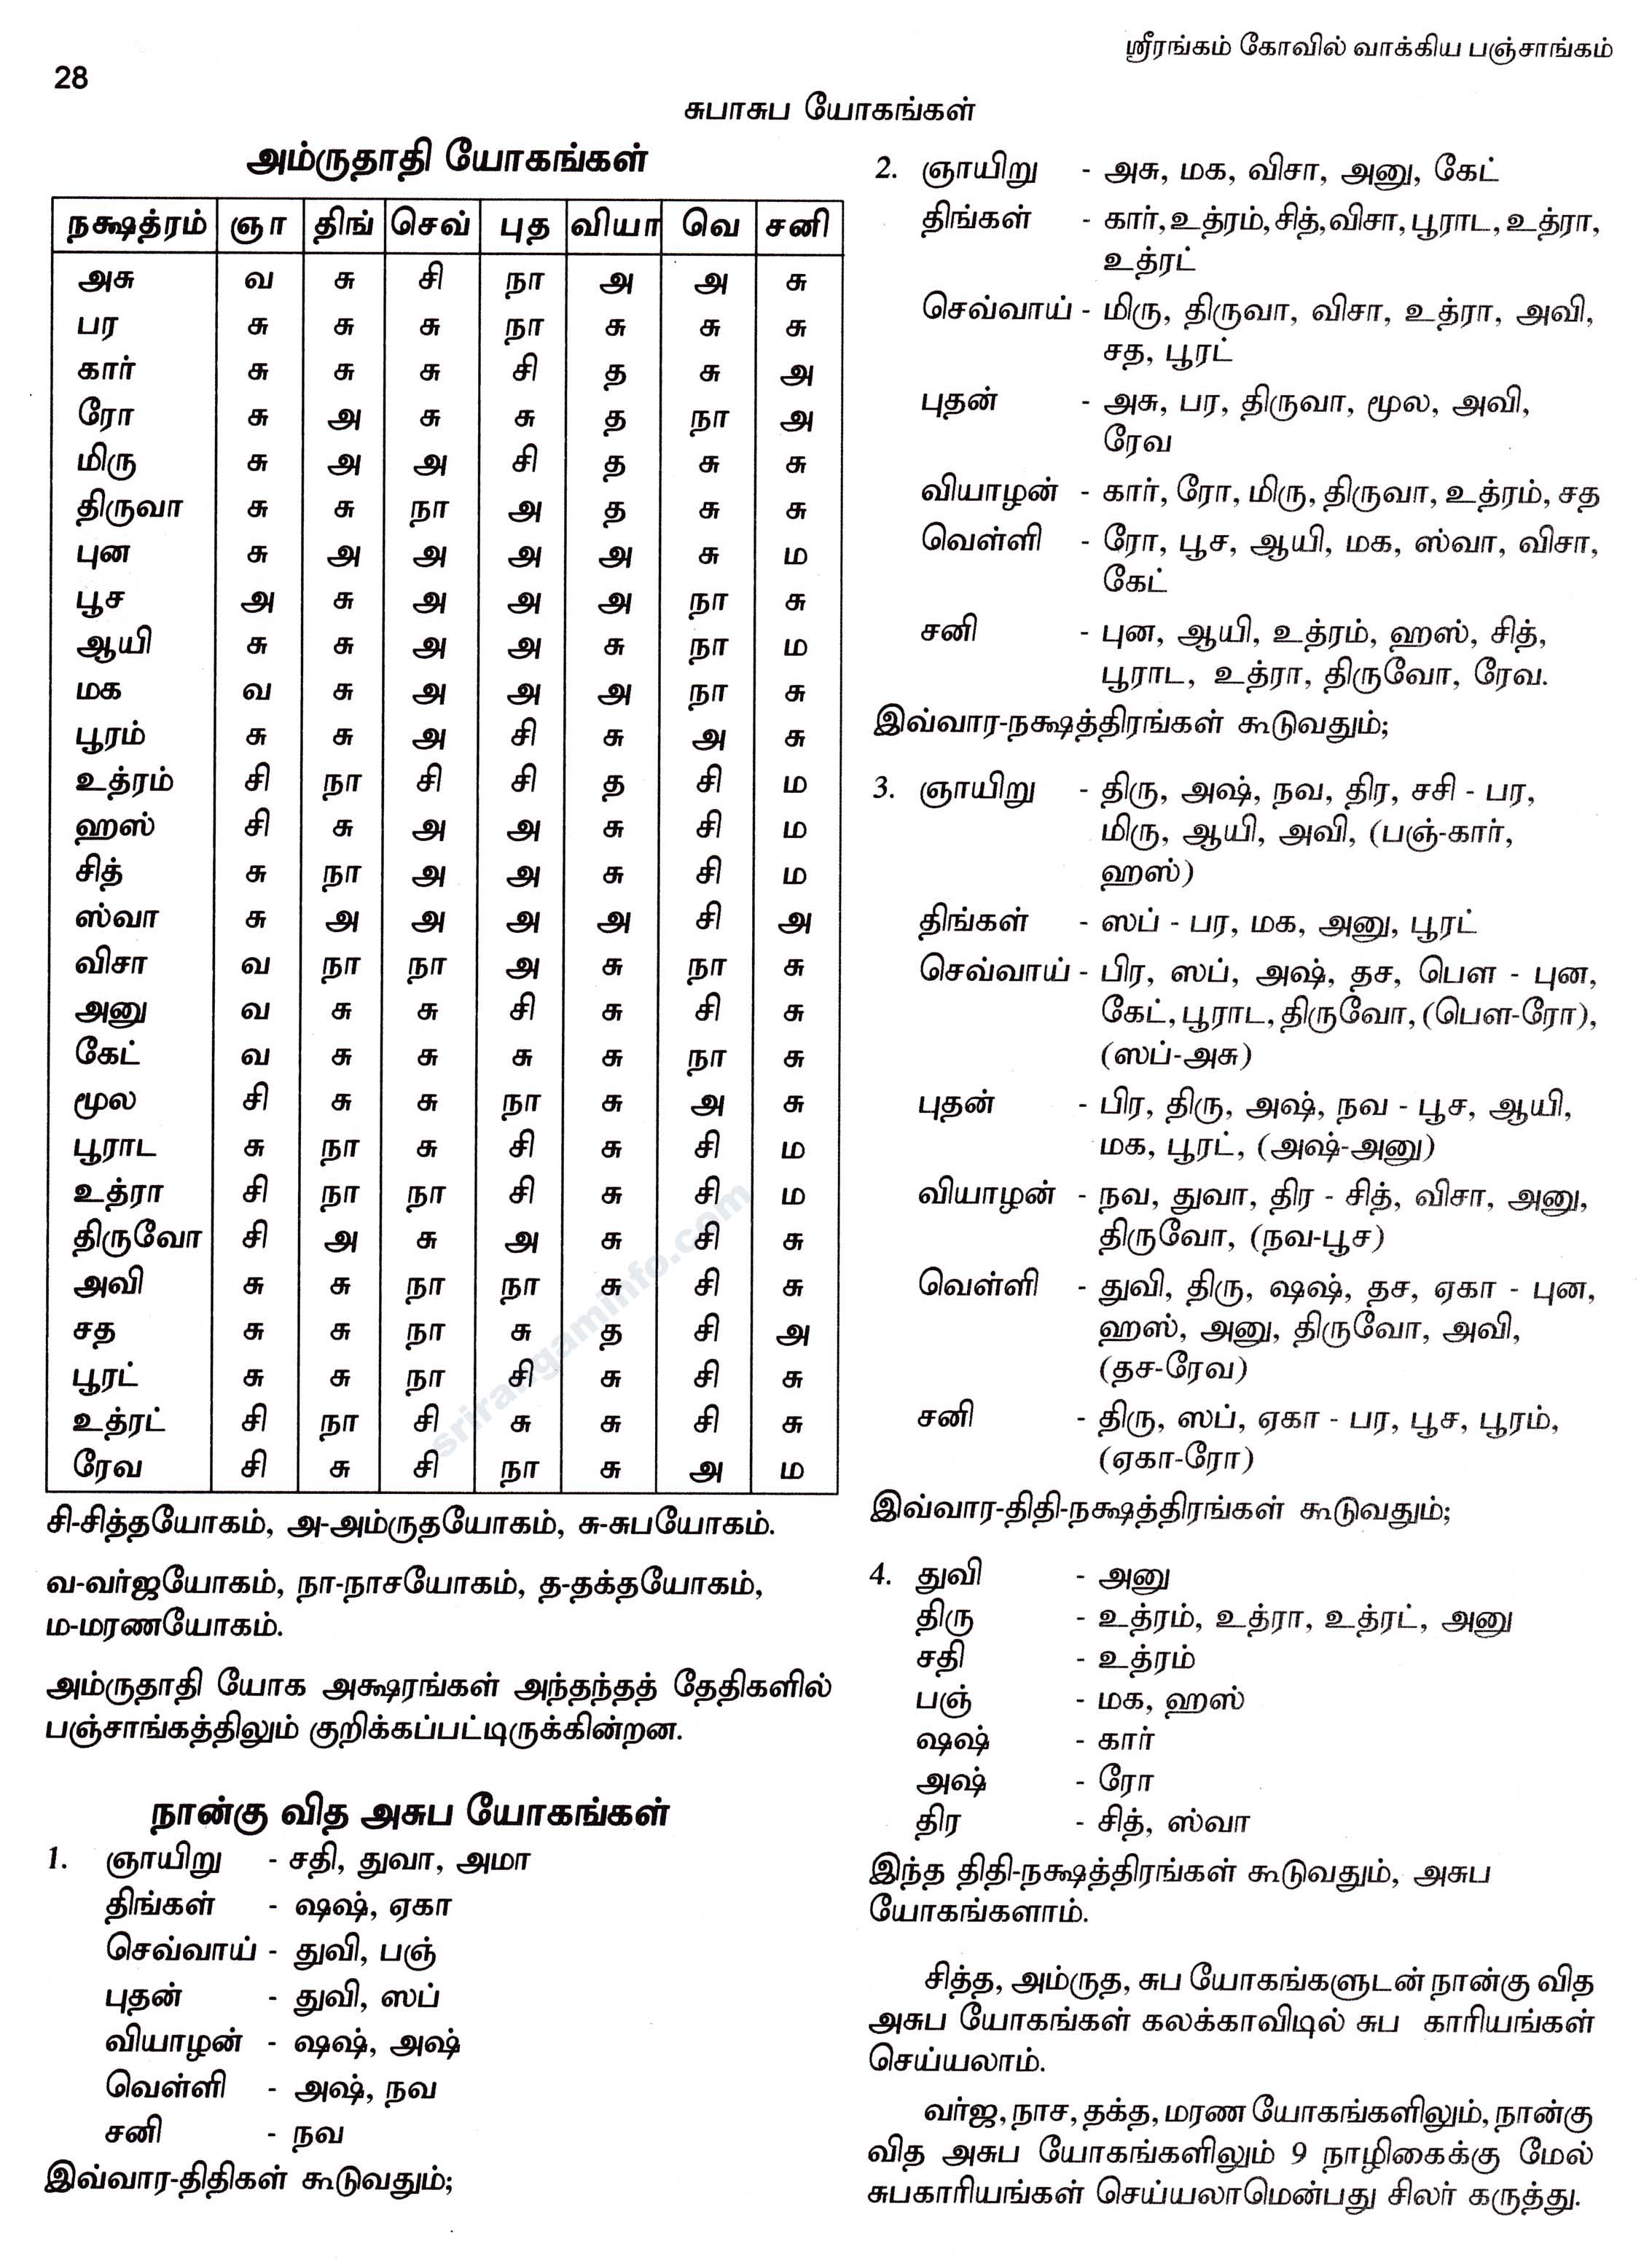 ஸ்ரீரங்கம் கோவில் வாக்கிய பஞ்சாங்கம்
28
சுபாசுப யோகங்கள்
அம்ருதாதி யோகங்கள்
நக்ஷத்ரம் ஞா திங் செவ் புத வியா வெ சனி
அசு வ சு சி நா அ அ சு
பர சு சு சு நா சு சு சு
கார் சு சு சு சி த சு அ
ரோ சு அ சு சு த நா அ
மிரு சு அ அ சி த சு சு
திருவா சு சு நா அ த சு சு
புன சு அ அ அ அ சு ம
பூச அ சு அ அ அ நா சு
ஆயி சு சு அ அ சு நா ம
மக வ சு அ அ அ நா சு
பூரம் சு சு அ சி சு அ சு
உத்ரம் சி நா சி சி த சி ம
ஹஸ் சி சு அ அ சு சி ம
சித் சு நா அ அ சு சி ம
ஸ்வா சு அ அ அ அ சி அ
விசா வ நா நா அ சு நா சு
அனு வ சு சு சி சு சி சு
கேட் வ சு சு சு சு நா சு
மூல சி சு சு நா சு அ சு
பூராட சு நா சு சி சு சி ம
உத்ரா சி நா நா சி சு சி ம
திருவோ சி அ சு அ சு சி சு
அவி சு சு நா நா சு சி சு
சத சு சு நா சு த சி அ
பூரட் சு சு நா சி சு சி சு
உத்ரட் சி நா சி சு சு சி சு
ரேவ சி சு சி நா சு அ ம
srirangaminfo.com
சி-சித்தயோகம், அ-அம்ருதயோகம், சு-சுபயோகம்.
வ-வர்ஜயோகம், நா-நாசயோகம், த-தக்தயோகம்,
ம-மரணயோகம்.
அம்ருதாதி யோக அக்ஷரங்கள் அந்தந்தத் தேதிகளில்
பஞ்சாங்கத்திலும் குறிக்கப்பட்டிருக்கின்றன.
நான்கு வித அசுப யோகங்கள்
1. ஞாயிறு - சதி, துவா, அமா
திங்கள் - ஷஷ், ஏகா
செவ்வாய் - துவி, பஞ்
புதன் - துவி, ஸப்
வியாழன் - ஷஷ், அஷ்
வெள்ளி - அஷ், நவ
சனி - நவ
இவ்வார-திதிகள் கூடுவதும்;
2. ஞாயிறு - அசு, மக, விசா, அனு, கேட்
திங்கள் - கார், உத்ரம், சித், விசா, பூராட, உத்ரா,
உத்ரட்
செவ்வாய் - மிரு, திருவா, விசா, உத்ரா, அவி,
சத, பூரட்
புதன் - அசு, பர, திருவா, மூல, அவி,
ரேவ
வியாழன் - கார், ரோ, மிரு, திருவா, உத்ரம், சத
வெள்ளி - ரோ, பூச, ஆயி, மக, ஸ்வா, விசா,
கேட்
சனி - புன, ஆயி, உத்ரம், ஹஸ், சித்,
பூராட, உத்ரா, திருவோ, ரேவ.
இவ்வார-நக்ஷத்திரங்கள் கூடுவதும்;
3. ஞாயிறு - திரு, அஷ், நவ, திர, சசி - பர,
மிரு, ஆயி, அவி, (பஞ்-கார்,
ஹஸ்)
திங்கள் - ஸப் - பர, மக, அனு, பூரட்
செவ்வாய் - பிர, ஸப், அஷ், தச, பௌ - புன,
கேட், பூராட, திருவோ, (பௌ-ரோ),
(ஸப்-அசு)
புதன் - பிர, திரு, அஷ், நவ - பூச, ஆயி,
மக, பூரட், (அஷ்-அனு)
வியாழன் - நவ, துவா, திர - சித், விசா, அனு,
திருவோ, (நவ-பூச)
வெள்ளி - துவி, திரு, ஷஷ், தச, ஏகா - புன,
ஹஸ், அனு, திருவோ, அவி,
(தச-ரேவ)
சனி - திரு, ஸப், ஏகா - பர, பூச, பூரம்,
(ஏகா-ரோ)
இவ்வார-திதி-நக்ஷத்திரங்கள் கூடுவதும்;
4. துவி - அனு
திரு - உத்ரம், உத்ரா, உத்ரட், அனு
சதி - உத்ரம்
பஞ் - மக, ஹஸ்
ஷஷ் - கார்
அஷ் - ரோ
திர - சித், ஸ்வா
இந்த திதி-நக்ஷத்திரங்கள் கூடுவதும், அசுப
யோகங்களாம்.
சித்த, அம்ருத, சுப யோகங்களுடன் நான்கு வித
அசுப யோகங்கள் கலக்காவிடில் சுப காரியங்கள்
செய்யலாம்.
வர்ஜ, நாச, தக்த, மரண யோகங்களிலும், நான்கு
வித அசுப யோகங்களிலும் 9 நாழிகைக்கு மேல்
சுபகாரியங்கள் செய்யலாமென்பது சிலர் கருத்து.